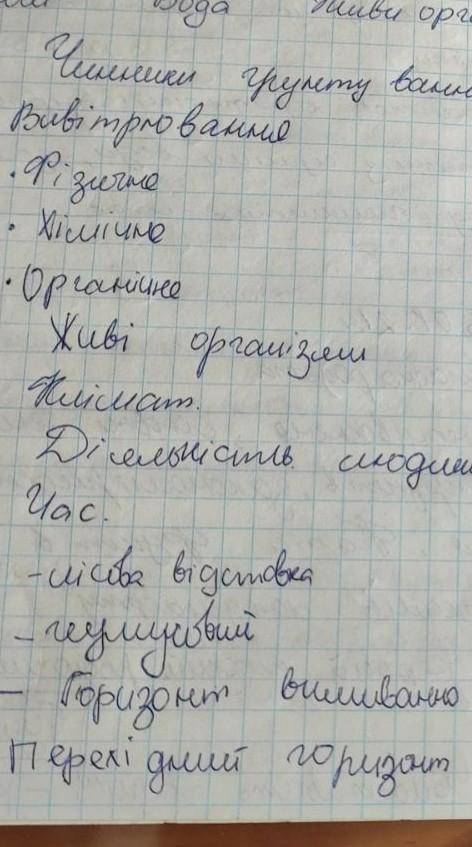 Вода Живи орг
Чинники грунту ванн
Вивітрювання
· Фізичне
· Хімічне
· Органічне
Живі організми
Клімат.
Діяльність людин
Час.
- лісова відстовка
- гумусовий
- Горизонт вимивання
Перехідний горизонт